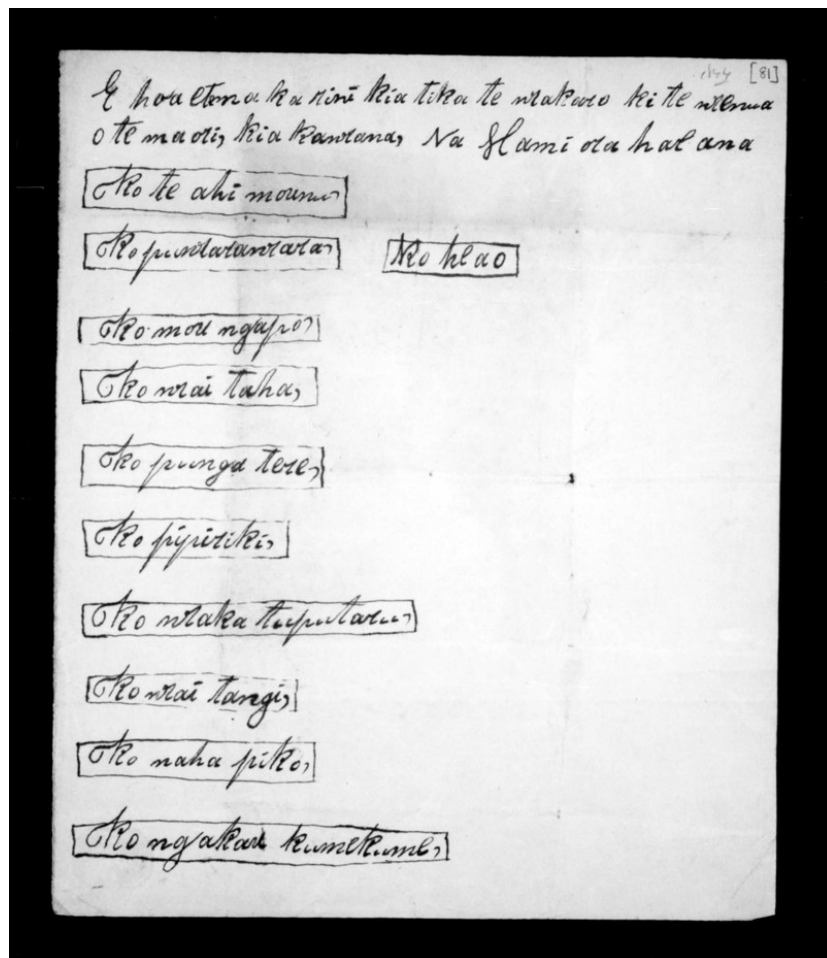 [81]
E hoa etema ka rini kia tika te wakaaro ki te wenua
o te maori, kia kawana, Na Hami ora hae ana
Ko te ahi mounu,
Ko puwarawara, Ko heao
Ko mou ngapo,
Ko wai taha,
Ko punga tere,
Ko pipiriki,
Ko waka tuputaru,
Ko wai tangi,
Ko naha piko,
Ko ngakau kumekume,